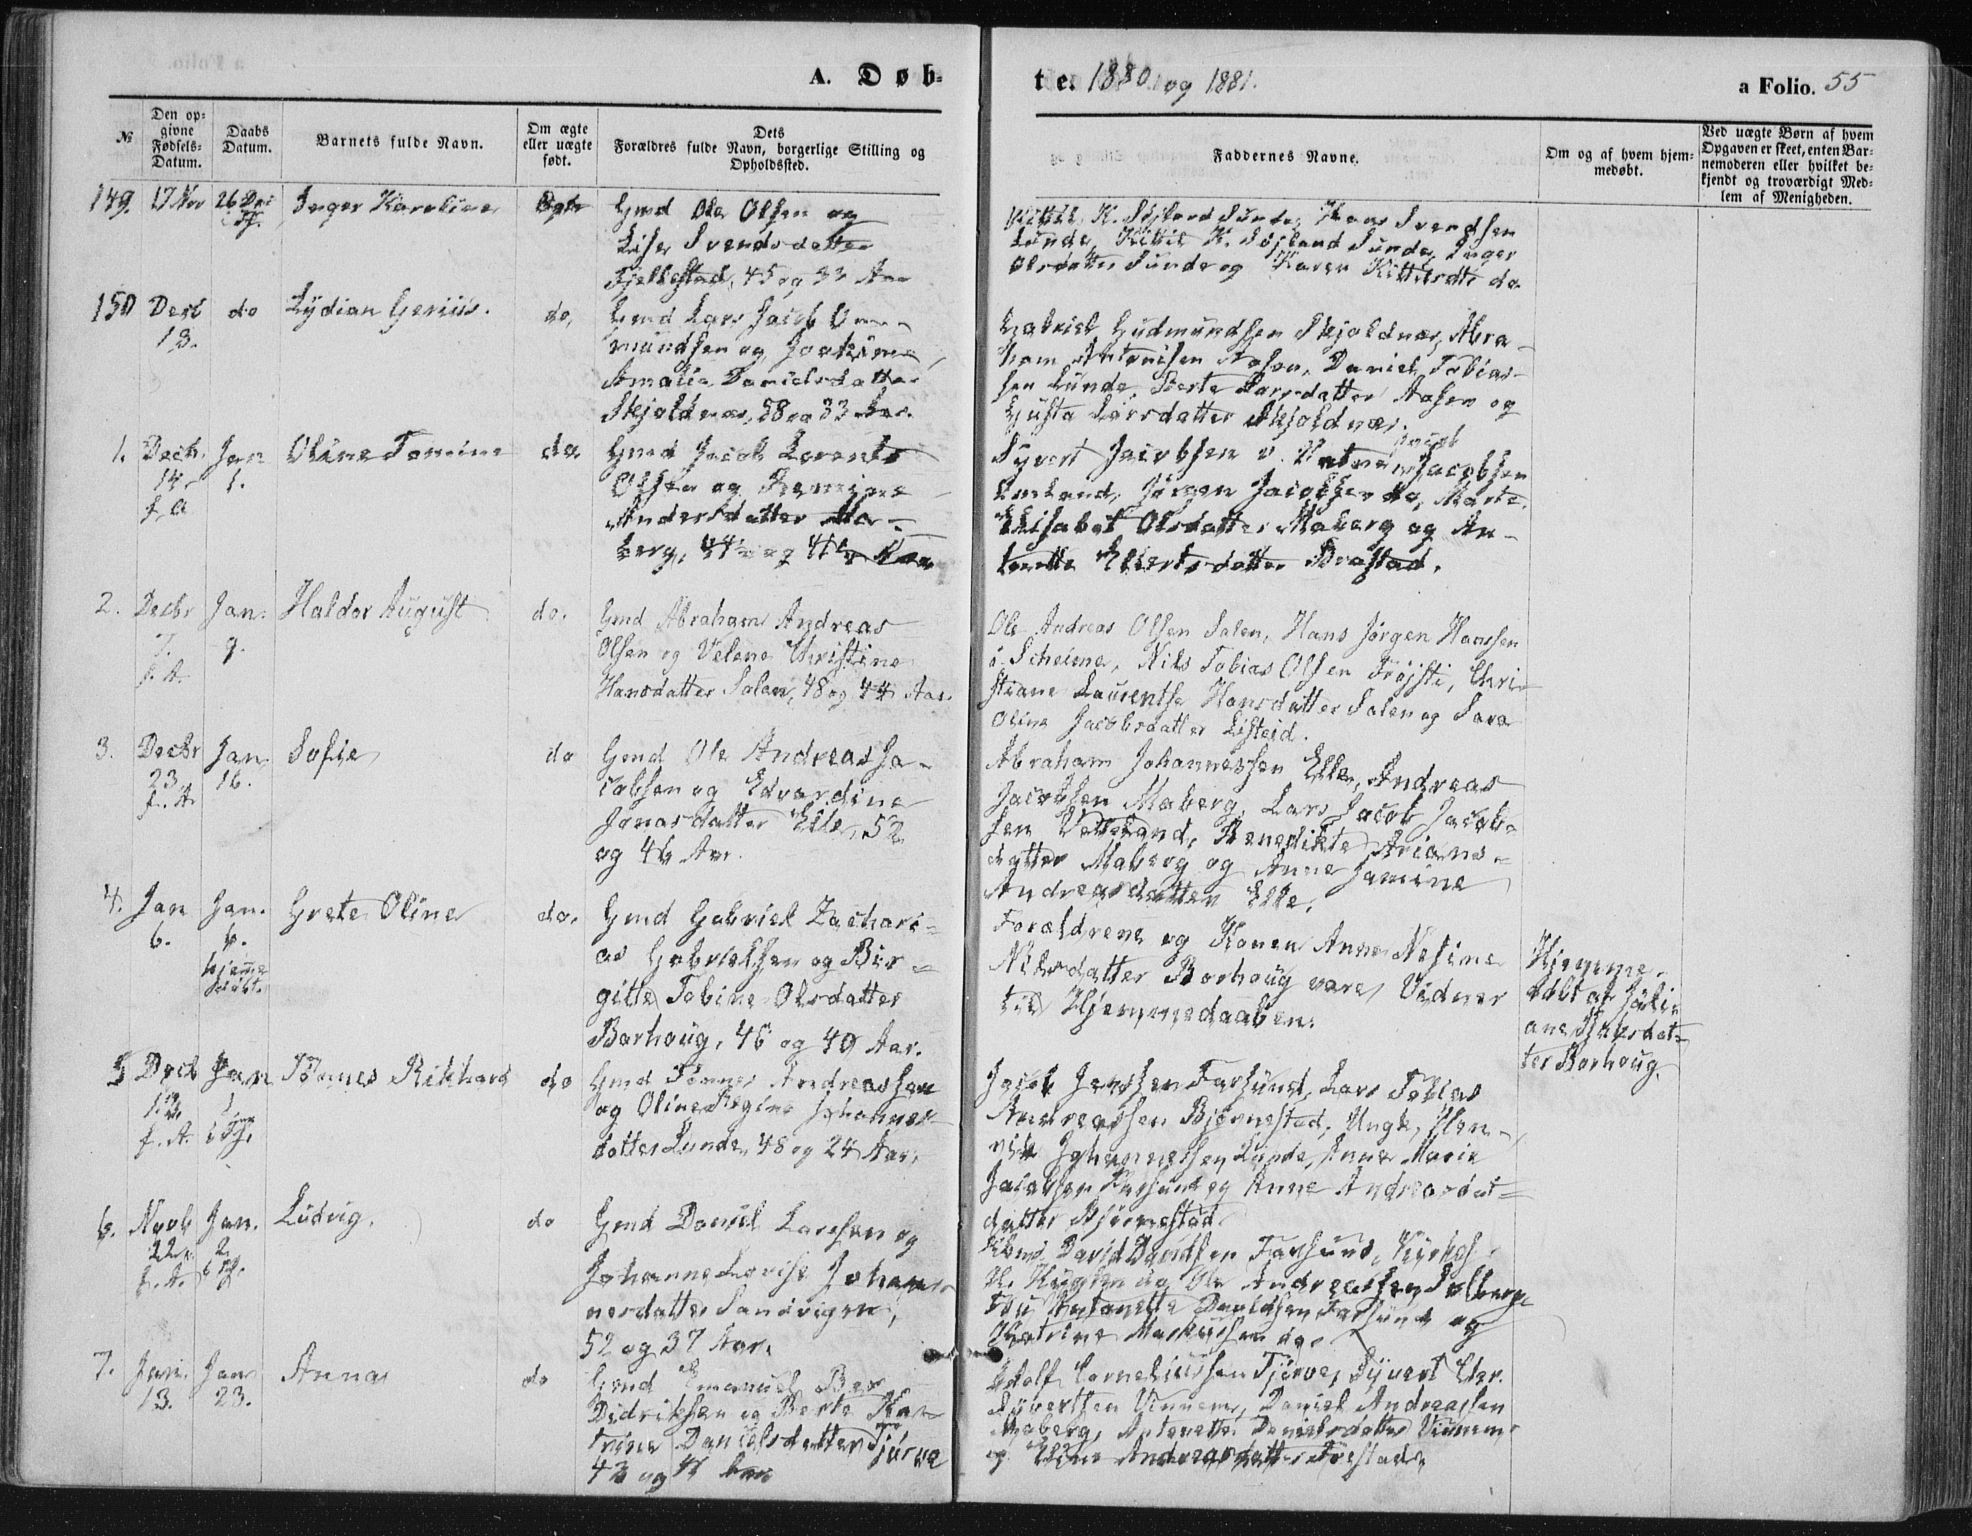 A. Døb-
te. 1880 og 1881.
a Folio. 55
№
Den op-
givne
Fødsels-
Datum.
Daabs
Datum.
Barnets fulde Navn.
Om ægte
eller uægte
født.
Dets
Forældres fulde Navn, borgerlige Stilling og
Opholdssted.
Faddernes Navne.
Om og af hvem hjem-
medøbt.
Ved uægte Børn af hvem
Opgaven er skeet, enten Bar-
nemoderen eller hvilket be-
kjendt og troværdigt Med-
lem af Menigheden.
149. 17 Nov 26 Dec Inger Karoline Ægte
Gmd Ole Olsen og
Lise Svendsdatter
Fjellestad, 45 og 33 Aar
Sunde, Hans Svendsen
Lunde, Kittil K. Sunde, Inger
Olsdatter Sunde og Karen do
150 Decb 13. do Lydian Gerius. do,
Gmd Lars Jacob
mundsen og Joakime
Amalie Danielsdatter
Skjoldnæs, 38 og 33 Aar.
Gabriel Gudmundsen Skjoldnæs, Abra-
ham Antonisen Aasen, Daniel Tobias-
sen Lunde, Berte Larsdatter Aasen og
Gusta Larsdatter Skjoldnæs.
1. Decb. 14. f. A Jan 1. Oline Tomine do.
Gmd Jacob Lorents
Olsen og
Andersdatter Ma-
berg, 44 og 41 Aar
Syvert Jacobsen v. Vatne, Jacob Jacobsen
Jørgen Jacobsen do, Marte
Elisabet Olsdatter Maberg og An-
tonette Eliertsdatter Brastad.
2. Decbr 7. f. A. Jan. 9. Haldor August do.
Gmd Abraham Andreas
Olsen og Velene Christine
Hansdatter Salen, 48 og 44 Aar.
Ole Andreas Olsen Salen, Hans Jørgen Hanssen
Nils Tobias Olsen Frøisti, Chri-
stiane Laurentse Hansdatter Salen og Sara
Oline Jacobsdatter Listeid.
3. Decbr 23 f. A. Jan. 16. Sofie do
Gmd Ole Andreas Ja-
cobsen og Edvardine
Jonasdatter Elle, 52
og 46 Aar.
Abraham Johannessen Elle, Andreas
Jacobsen Maberg, Lars Jacob Jacob-
sen Benedikte Arians-
datter Maberg og Anne Jamine
Andreasdatter Elle.
4. Jan 6. Jan. 6. hjemme
døbt. Grete Oline do.
Gmd Gabriel Zachari-
as Gabrielsen og Bir-
gitte Tobine Olsdatter
Borhaug, 46 og 40 Aar.
Forældrene og Konen Anne Nesine
Nilsdatter Borhaug vare Vidner
til Hjemmedaaben.
Hjemme-
døbt af
datter Borhaug.
5 Decb f. A. Jan Tønnes Rikhard do
Gmd Tønnes Andreassen
og Oline Regine Johannes-
datter Lunde, 48 og 24 Aar.
Jacob Jenssen Farsund, Lars Tobias
Andreassen Bjørnestad, Ungk, Hen-
rik Johannessen Lunde, Anne Marie
Jacobsen Farsund og Anne Andreasdat-
datter Bjørnestad
6. Novb 22. f. A. Jan. 2. Ludvig. do
Gmd Daniel Larssen og
Johanne Lovise Johan-
nesdatter Sandvigen,
52 og 37 Aar.
David Davidsen Farsund,
og Ole Andreassen Solberg
Antonette Davidsen Farsund og
Katrine Markussen do.
7. Jan. 13. Jan 23. Anna do
Gmd Emanuel
Didriksen og Berte Ka-
trine Danielsdatter Tjørve
Adolf Corneliussen Tjørve, Syvert
Syvertsen Vinnem, Daniel Andreassen
Maberg, Antonette Danielsdatter Vinnem
og Eline Andreasdatter